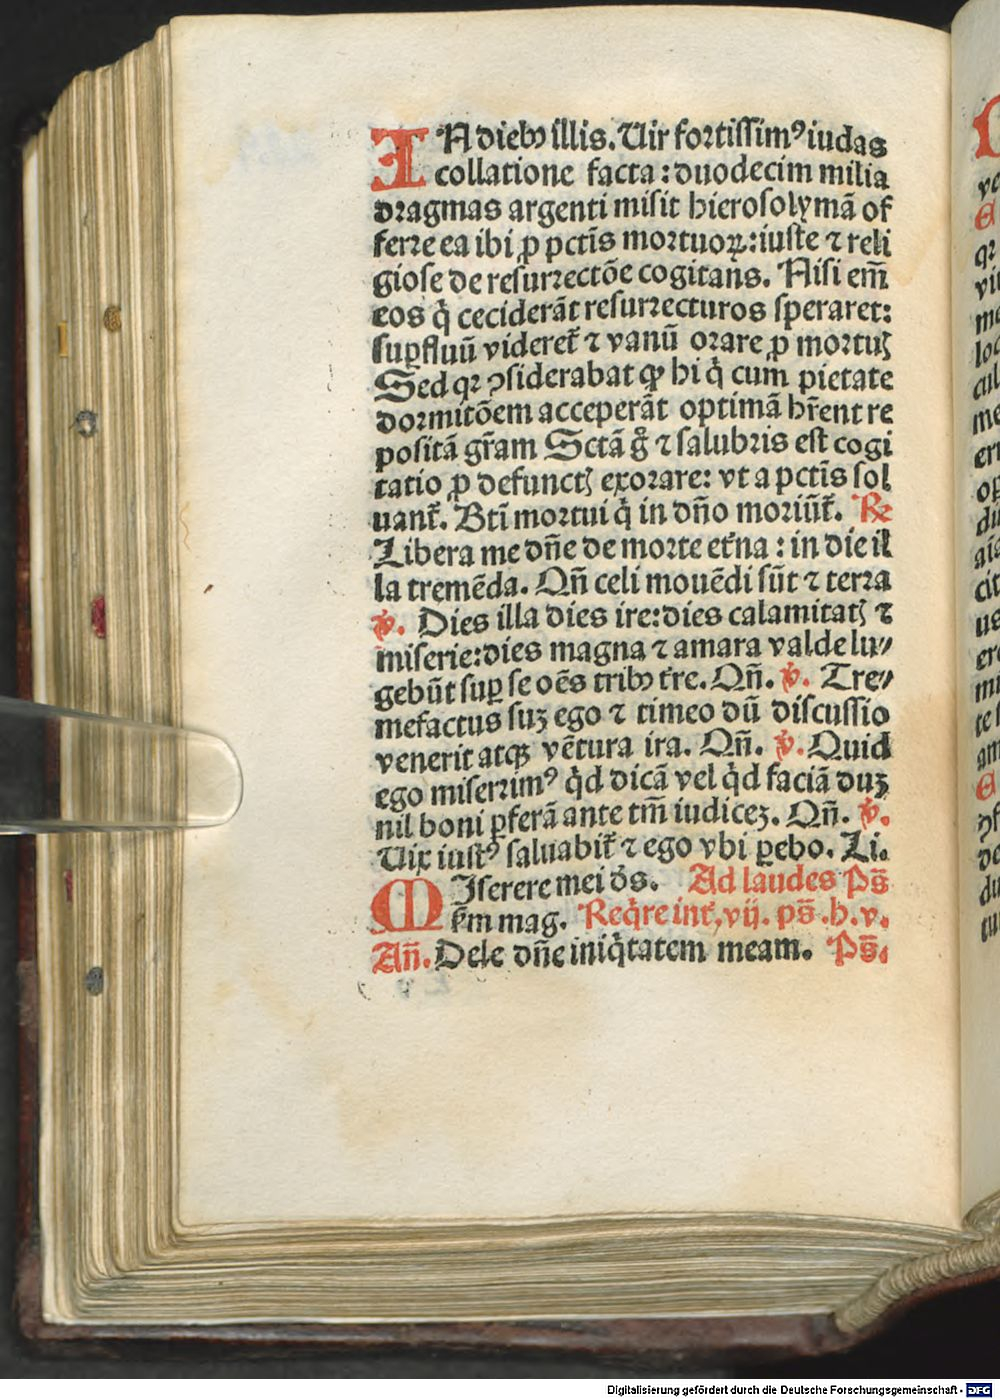 IN dieb⁹ illis. Uir fortissim⁹ iudas
collatione facta: duodecim milia
dragmas argenti misit hierosolymā of
ferre ea ibi ꝓ pctīs mortuoꝝ: iuste ⁊ reli
giose de resurrectōe cogitans. Nisi em̄
eos q̇ ceciderāt resurrecturos speraret:
suꝑfluū videret̃ ⁊ vanū orare ꝓ mortuꝭ
Sed qꝛ ꝯsiderabat ꝙ hi q̇ cum pietate
dormitōem acceperāt optimā hr̄ent re
positā gr̄am Sctā g̊ ⁊ salubris est cogi
tatio ꝓ defunctꝭ exorare: vt a pctīs sol
uant̃. Btī mortui q̇ in dn̄o moriūt̃. ℞
Libera me dn̄e de morte et̃na: in die il
la tremēda. Qn̄ celi mouēdi sūt ⁊ terra
℣. Dies illa dies ire: dies calamitatꝭ ⁊
miserie: dies magna ⁊ amara valde lu⸗
gebūt suꝑ se oēs trib⁹ tr̃e. Qn̄. ℣. Tre⸗
mefactus suꝫ ego ⁊ timeo dū discussio
venerit atqꝫ vētura ira. Qn̄. ℣. Quid
ego miserrim⁹ q̇d dicā vel q̇d faciā duꝫ
nil boni ꝑferā ante tm̄ iudiceꝫ. Qn̄. ℣.
Uix iust⁹ saluabit̃ ⁊ ego vbi ꝑebo. Li.
MIserere mei ds̄. Ad laudes Ps̄
km̄ mag. Req̇re int̃ vij. ps̄. b. v.
An̄. Dele dn̄e iniq̇tatem meam. Ps̄.
Digitalisierung gefördert durch die Deutsche Forschungsgemeinschaft - DFG